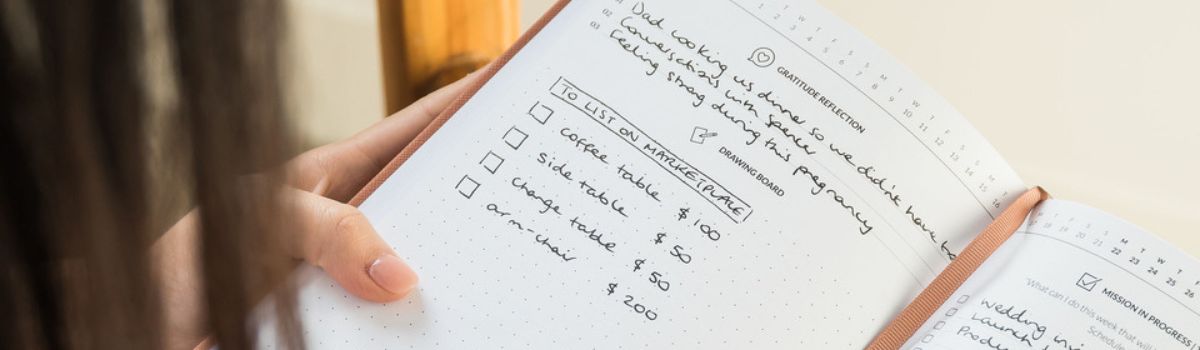 GRATITUDE REFLECTION
01
02
03
Dad cooking us dinner so we didn't have to
Conversations with Spencer
Feeling strong during this pregnancy
DRAWING BOARD
TO LIST ON MARKETPLACE
coffee table $100
side table $50
change table $50
arm-chair $200
T W T F S S M T W T F S S M
1 2 3 4 5 6 7 8 9 10 11 12 13 14 15 16
M T W T
19 20 21 22 23 24 25 26
MISSION IN PROGRESS |
"What can I do this week that will
Schedule
wedding
Launch